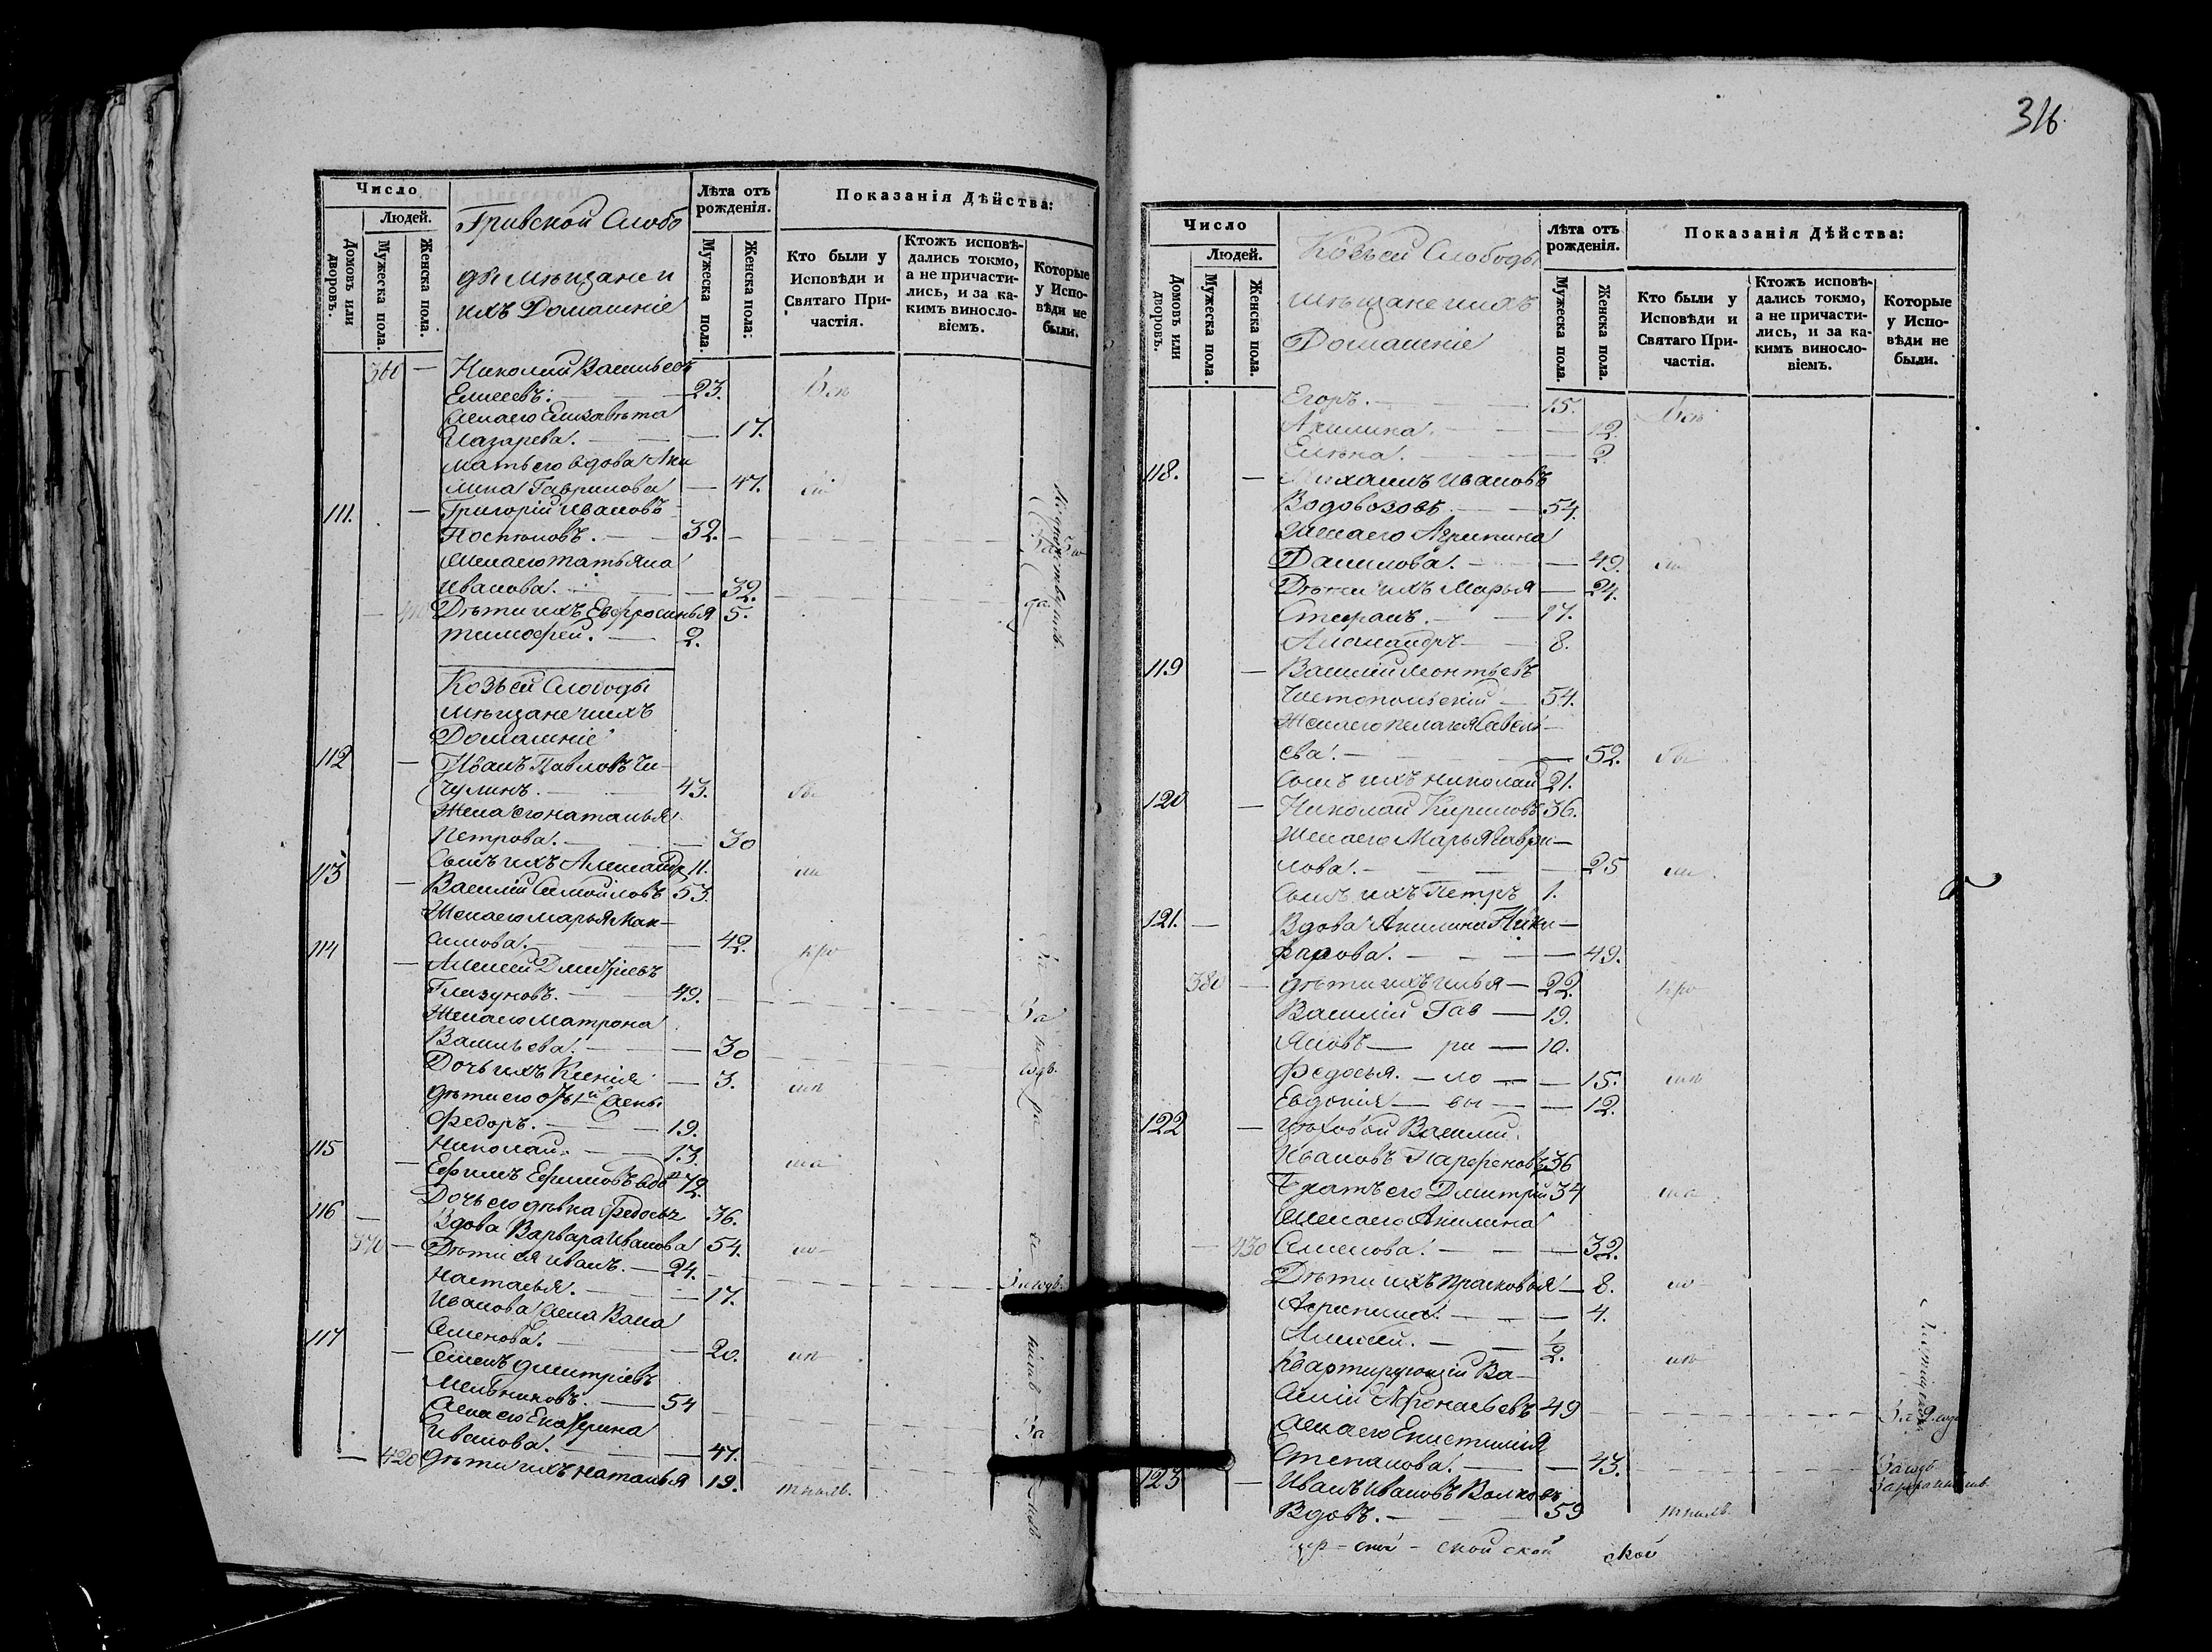 Число
Людей.
Домовъ или дворовъ.
Мужеска пола.
Женска пола.
Гривской Слобо
ды мѣщане и
ихъ Домашніе
Лѣта отъ рожденія.
Мужеска пола.
Женска пола.
Показанія Дѣйства:
Кто были у Исповѣди и Святаго Причастія.
Ктожъ исповѣдались токмо, а не причастились, и за какимъ винословіемъ.
Которые у Исповѣди не были.
Николай Васильевъ
Елисеевъ. 23.
Жена его Елизавѣта
Назарева. 17.
Мать его вдова Аки
лина Гаврилова 47.
111. Григорій Ивановъ
Поспѣловъ. 32.
Жена его Татьяна
Иванова. 32.
Дѣти ихъ Ефросинья 5.
Тимофей. 2.
Козьей Слободы
мѣщане и ихъ
Домашніе
112 Иванъ Павловъ Чи-
чулинъ. 43.
Жена его Наталья
Петрова. 30
Сынъ ихъ Александр 11.
113 Василій Самойловъ 53.
Жена его Марья Мак-
симова. 42.
114 Алексей Дмитріевъ
Глазуновъ. 49.
Жена его Матрона
Васильева. 30
Дочь ихъ Ксенія 3.
Дѣти его отъ 1й жены
Федоръ. 19.
Николай. 13.
115 Ефимъ Ефимовъ вдо 72.
Дочь его дѣвка Федосья 36.
116 Вдова Варвара Иванова 54.
370 Дѣти ея Иванъ. 24.
Настасья. 17.
Иванова жена Васса
Семенова. 20.
117 Семенъ Дмитріевъ
Мельниковъ. 54
Жена его Екатерина
Иванова. 47.
420 Дѣти ихъ Наталья 19.
316
Число
Людей.
Домовъ или дворовъ.
Мужеска пола.
Женска пола.
Козьей Слободы
мѣщане и ихъ
Домашніе
Лѣта отъ рожденія.
Мужеска пола.
Женска пола.
Показанія Дѣйства:
Кто были у Исповѣди и Святаго Причастія.
Ктожъ исповѣдались токмо, а не причастились, и за какимъ винословіемъ.
Которые у Исповѣди не были.
Егоръ. 15.
Акилина. 12.
Елена. 2
118. Михаилъ Ивановъ
Водовозовъ. 54.
Жена его Агрипина
Данилова. 49.
Дѣти ихъ Марья 24.
Стефанъ. 17.
Александръ 8.
119 Василій Леонтьевъ
Чистопольскій 54.
Жена его Пелагея Савель-
ева. 52.
Сынъ ихъ Николай 21.
120 Николай Кириловъ 36.
Жена его Марья Гаври-
лова. 25
Сынъ ихъ Петръ 1.
121. Вдова Акилина Ники-
фарова. 49.
380 Дѣти ихъ Илья 22.
Василій Гав 19.
Яковъ ри 10.
Федосья. ло 15.
Евдокія вы 12.
122 Цѣховой Василій
Ивановъ Парфеновъ 36
Братъ его Дмитрій 34
Жена его Акилина
430 Семенова. 32.
Дѣти ихъ Прасковья 8.
Агрипина. 4.
Алексей. 1/2.
Квартирующій Ва-
силій Афонасьевъ 49
Жена его Епистимія
Степанова. 43.
123 Иванъ Ивановъ Волковъ
Вдовъ. 59